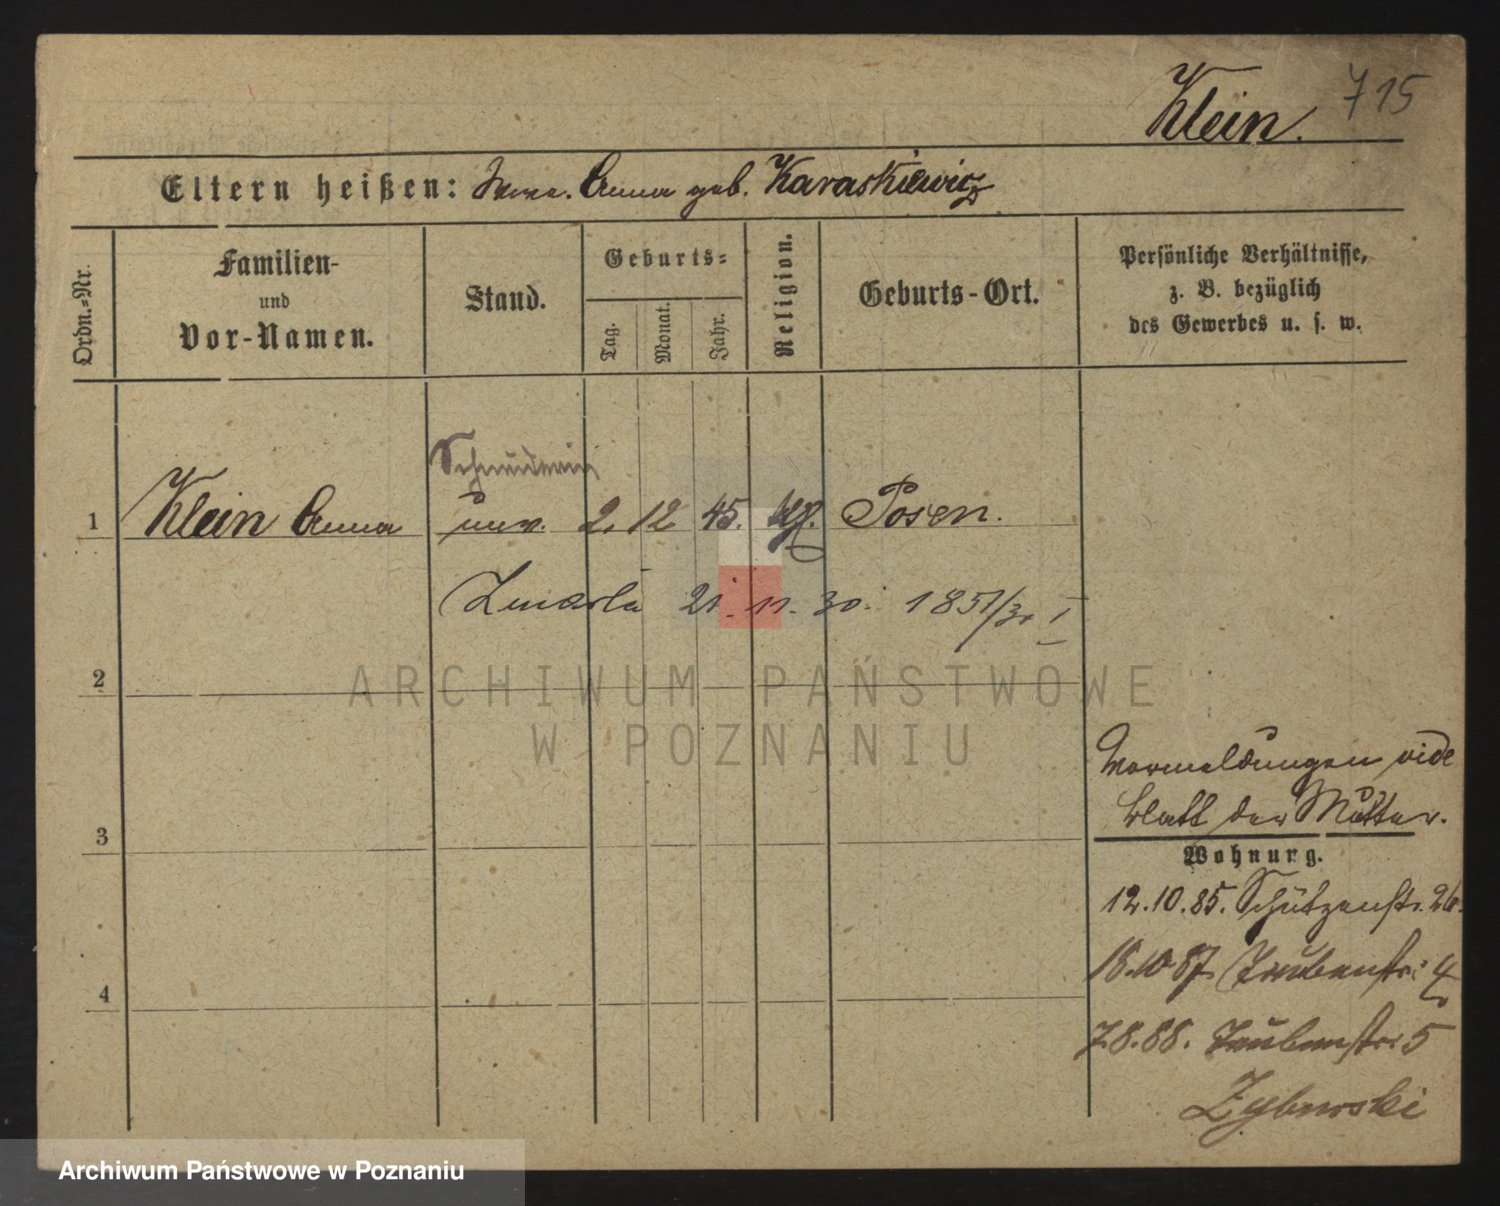 Klein. 715
Eltern heißen: Anna geb. Karaskiewicz
Ordn.-Nr.
Familien-
und
Vor-Namen.
Stand.
Geburts-
Tag.
Monat.
Jahr.
Religion.
Geburts-Ort.
Persönliche Verhältnisse,
z. B. bezüglich
des Gewerbes u. s. w.
Schneiderin
1 Klein Anna unv. 2. 12 45. kth. Posen.
Zmarła 21. 11. 30. 1851/30 I
2
ARCHIWUM PAŃSTWOWE
W POZNANIU
Vormeldungen vide
Blatt der Mutter.
3
Wohnung.
12.10.85. Schützenstr. 26.
18.10 87. Taubenstr. 4
4
7.8.88. Taubenstr. 5
Zyburski
Archiwum Państwowe w Poznaniu